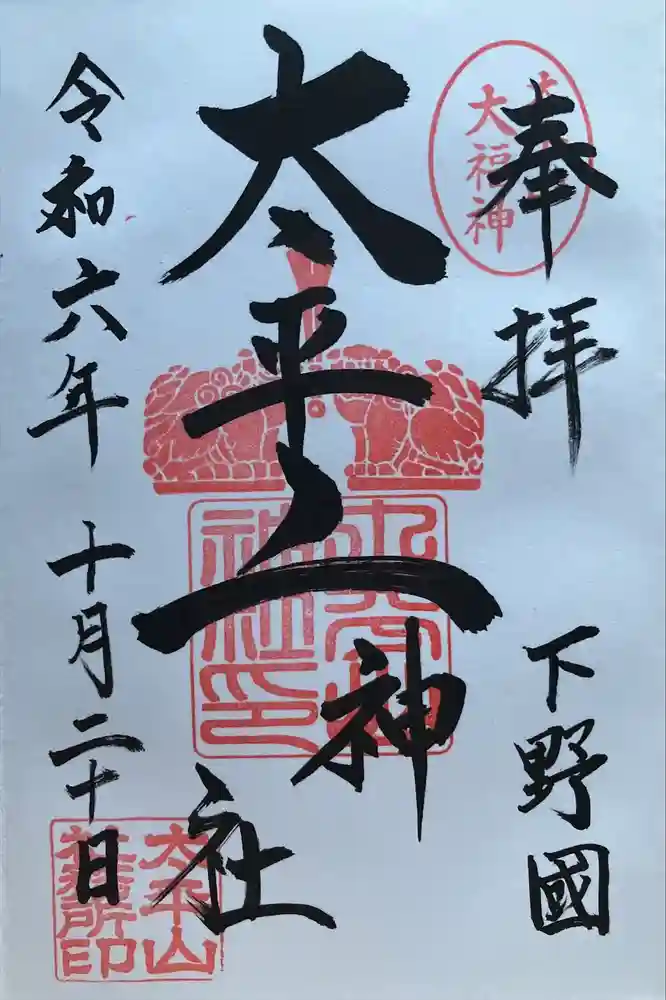 奉拝
大福神
下野國
太平山神社
太平山
神社印
令和六年十月二十日
太平山
社務所印